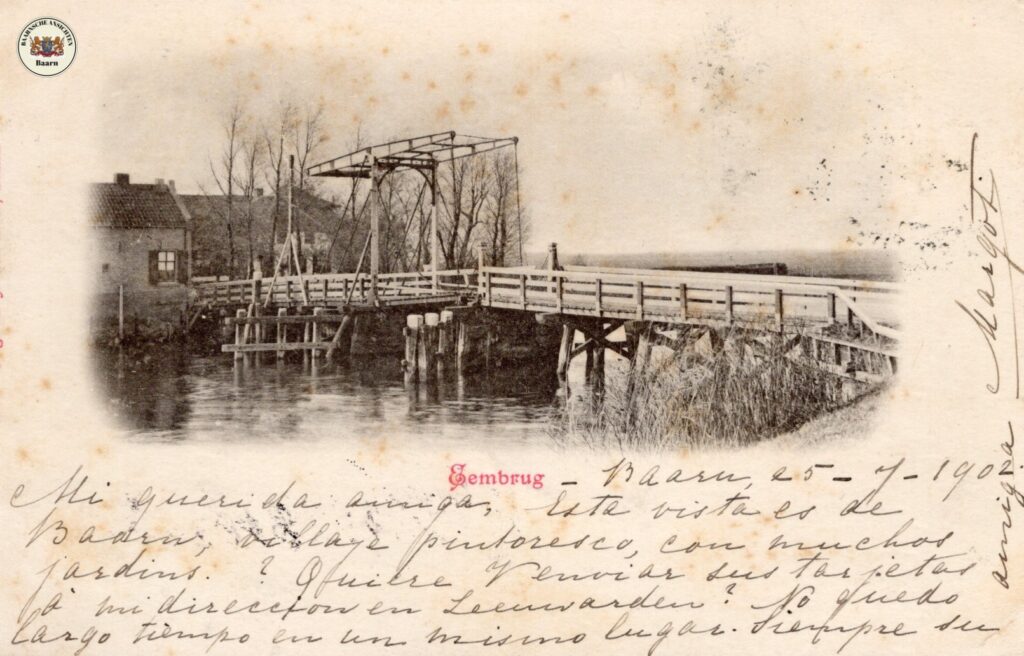 BAARNSCHE ANSICHTEN
Baarn
Eembrug
Baarn, 25-7-1902
Mi querida amiga, Esta vista es de
Baarn, village pintoresco, con muchos
jardins. ? Quiere V enviar sus tarjetas
á mi direccion en Leeuwarden? No quedo
largo tiempo en un mismo lugar. Siempre su
amiga
Margot.